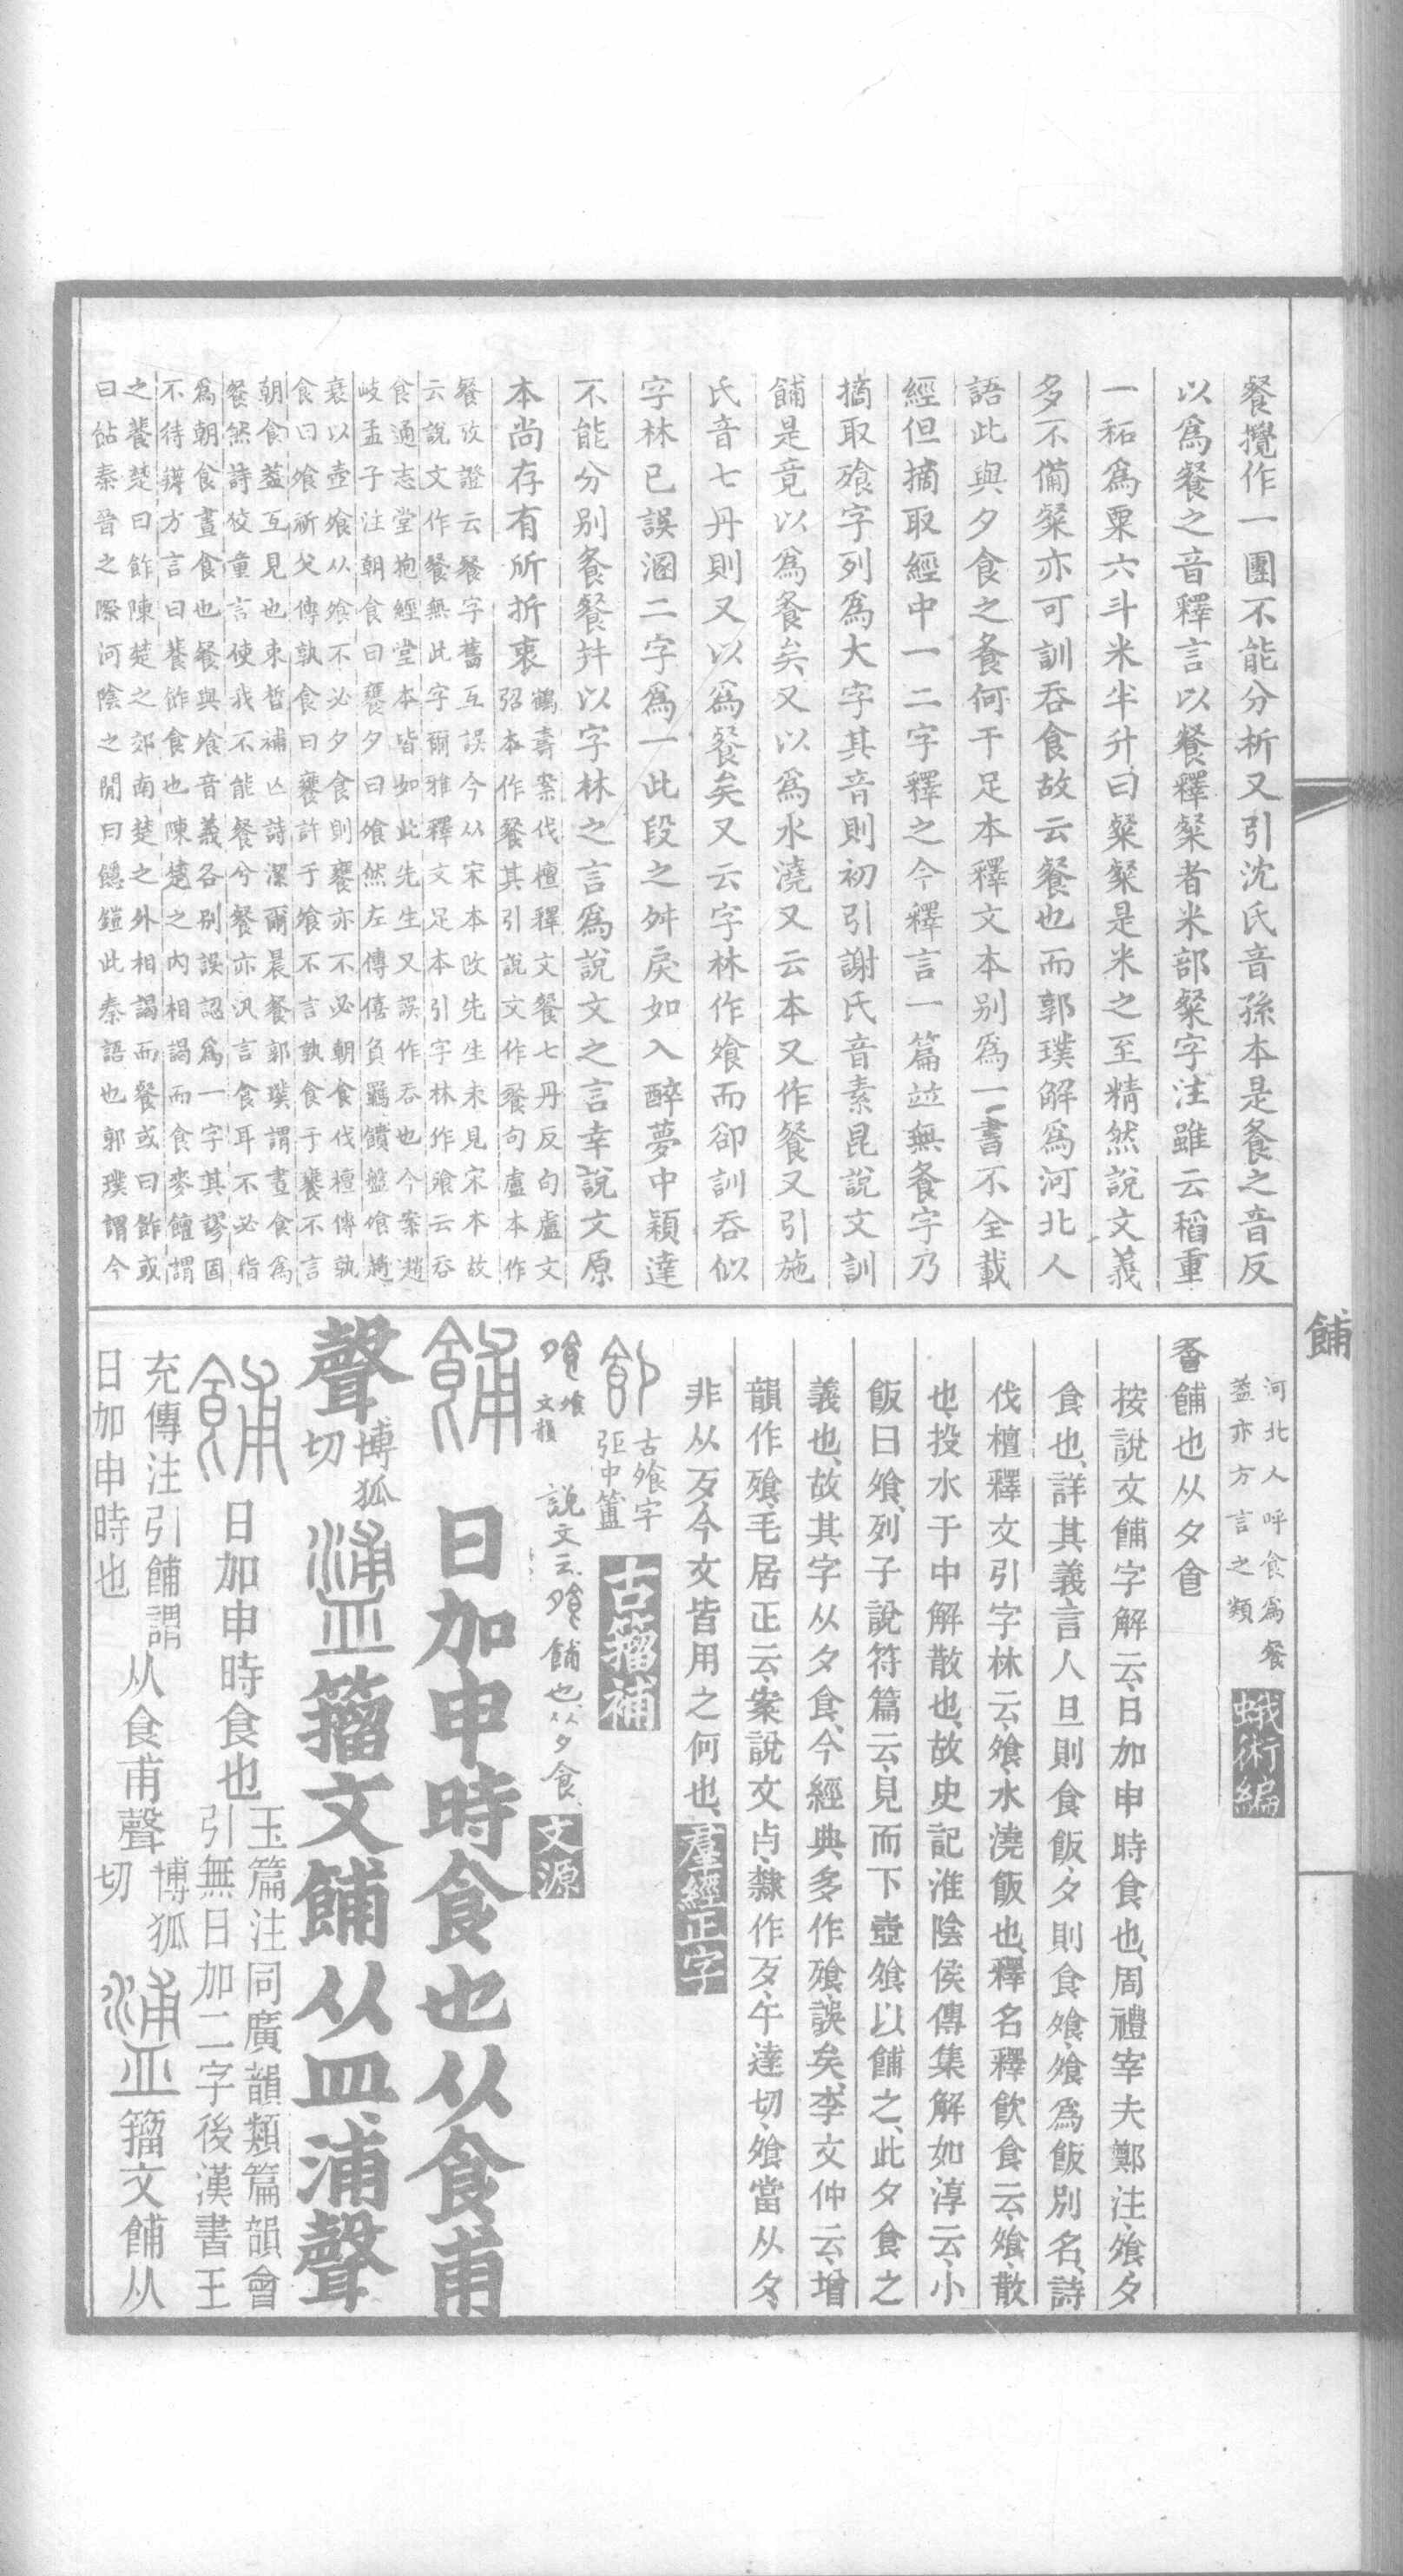 餐攪作一團不能分析又引沈氏音孫本是飧之音反
以爲餐之音釋言以餐釋粲者米部粲字注雖云稻重
一䄷爲粟六斗米半升曰粲粲是米之至精然說文義
多不備粲亦可訓吞食故云餐也而郭璞解爲河北人
語此與夕食之飧何干足本釋文本別爲一書不全載
經但摘取經中一二字釋之今釋言一篇竝無飧字乃
摘取飱字列爲大字其音則初引謝氏音素昆說文訓
餔是竟以爲飧矣又以爲水澆又云本又作餐又引施
氏音七丹則又以爲餐矣又云字林作飧而卻訓吞似
字林已誤溷二字爲一此段之舛戾如入醉夢中穎達
不能分別飧餐幷以字林之言爲說文之言幸說文原
本尚存有所折衷
鶴壽案伐檀釋文餐七丹反句盧文
弨本作餐其引說文作餐句盧本作
餐攷證云餐字舊互誤今从宋本改先生未見宋本故
云說文作餐無此字爾雅釋文足本引字林作飱云吞
食通志堂抱經堂本皆如此先生又誤作吞也今案趙
岐孟子注朝食曰饔夕曰飧然左傳僖負羈饋盤飧趙
衰以壺飧从飧不必夕食則饔亦不必朝食伐檀傳孰
食曰飧祈父傳孰食曰饔許于飧不言孰食于饔不言
朝食葢互見也束晳補亡詩潔爾晨餐郭璞謂晝食爲
餐然詩狡童言使我不能餐兮餐亦汎言食耳不必指
爲朝食晝食也餐與飧音義各別誤認爲一字其謬固
不待辯方言曰䬶飵食也陳楚之內相謁而食麥饘謂
之䬶楚曰飵陳楚之郊南楚之外相謁而餐或曰飵或
曰䬯秦晉之際河陰之閒曰䭡䭓此秦語也郭璞謂今
餔
河北人呼食爲餐
葢亦方言之類
蛾術編
餔也从夕食
按說文餔字解云、日加申時食也、周禮宰夫鄭注、飧、夕
食也、詳其義言人旦則食飯、夕則食飧、飧爲飯別名、詩
伐檀釋文引字林云、飧、水澆飯也、釋名釋飲食云、飧、散
也、投水于中解散也、故史記淮陰侯傳集解如淳云、小
飯曰飧、列子說符篇云、見而下壺飧以餔之、此夕食之
義也、故其字从夕食、今經典、多作飱、誤矣、李文仲云、增
韻作飱、毛居正云、案說文歺、隸作歹、午達切、飧當从夕、
非从歹、今文皆用之何也、
羣經正字
古飧字
弫中簠
古籀補
說文云、飧、餔也、从夕食、
文源
餔
日加申時食也从食甫
聲
博狐
切
籀文餔从皿浦聲
餔
日加申時食也
玉篇注同廣韻類篇韻會
引無日加二字後漢書王
充傳注引餔謂
日加申時也
从食甫聲
博狐
切
籀文餔从